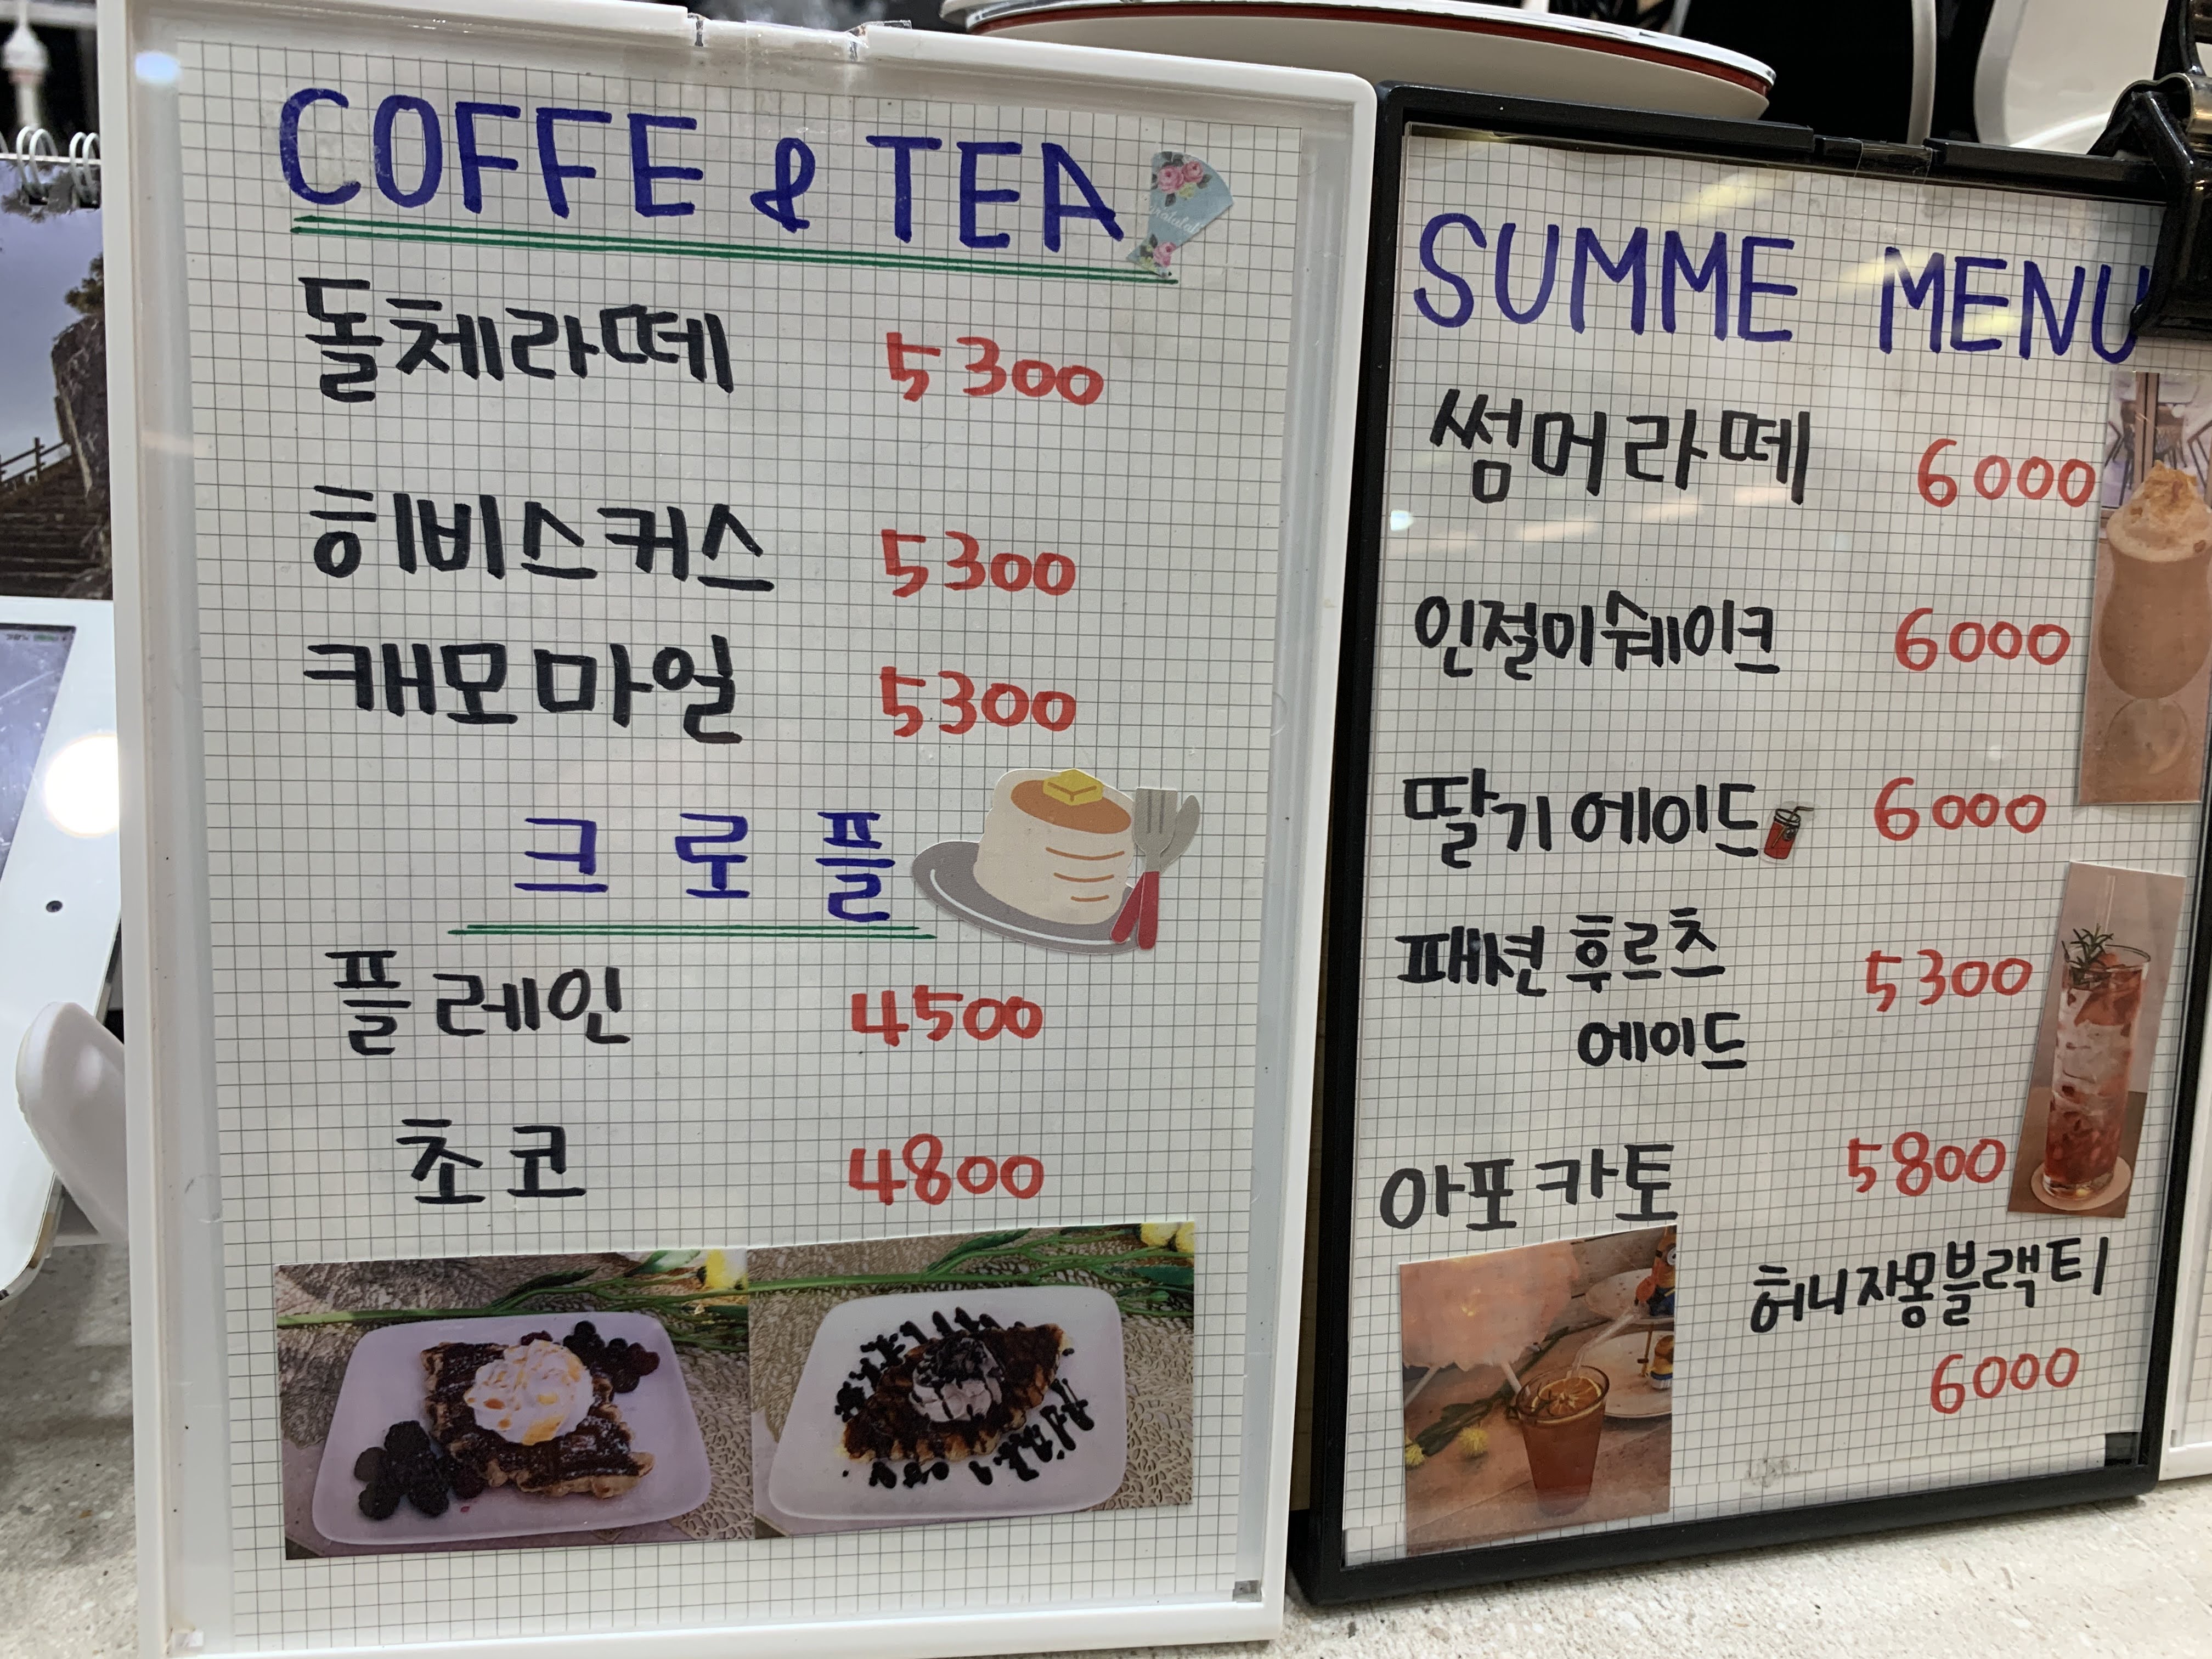 COFFE & TEA
돌체라떼 5300
히비스커스 5300
캐모마일 5300
크로플
플레인 4500
초코 4800
SUMME MENU
썸머라떼 6000
인절미쉐이크 6000
딸기에이드 6000
패션후르츠 5300
에이드
아포카토 5800
허니자몽블랙티
6000